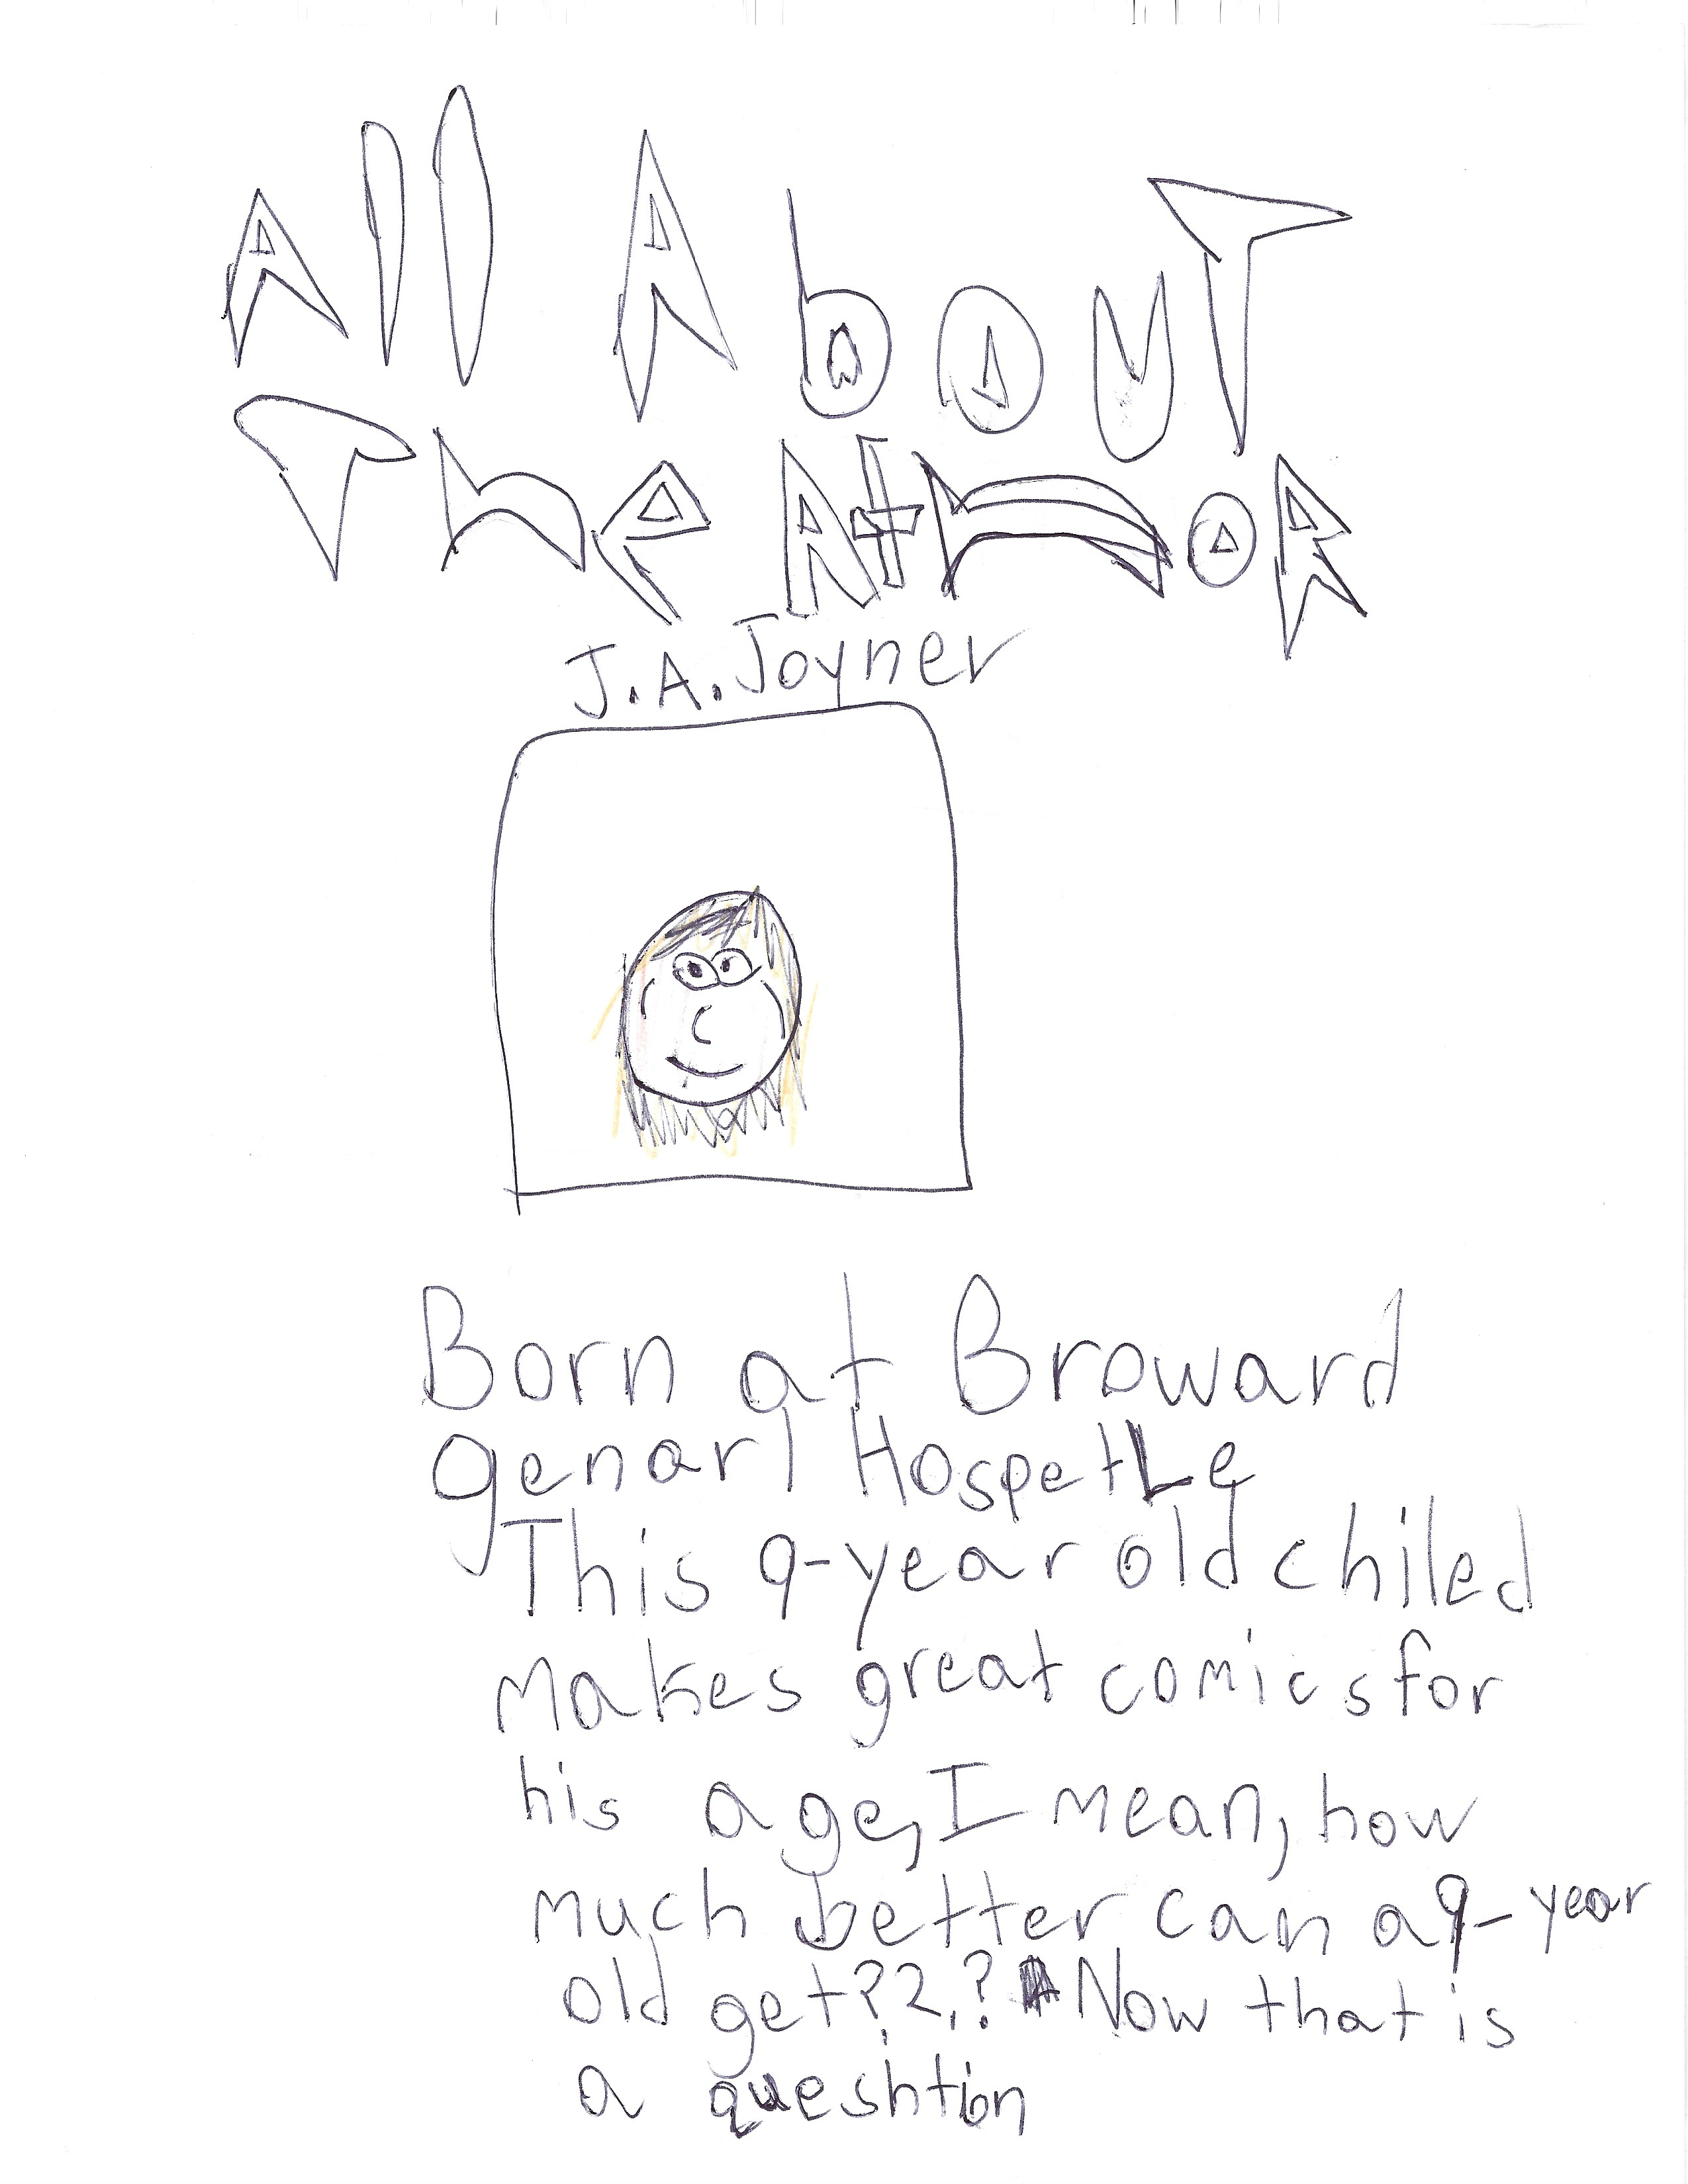 All AbouT
The AthoR
J.A. Joyner
Born at Broward
genarl HospetLe
This 9-year old chiled
makes great comics for
his age, I mean, how
much better can a 9-year
old get??? Now that is
a queshtion